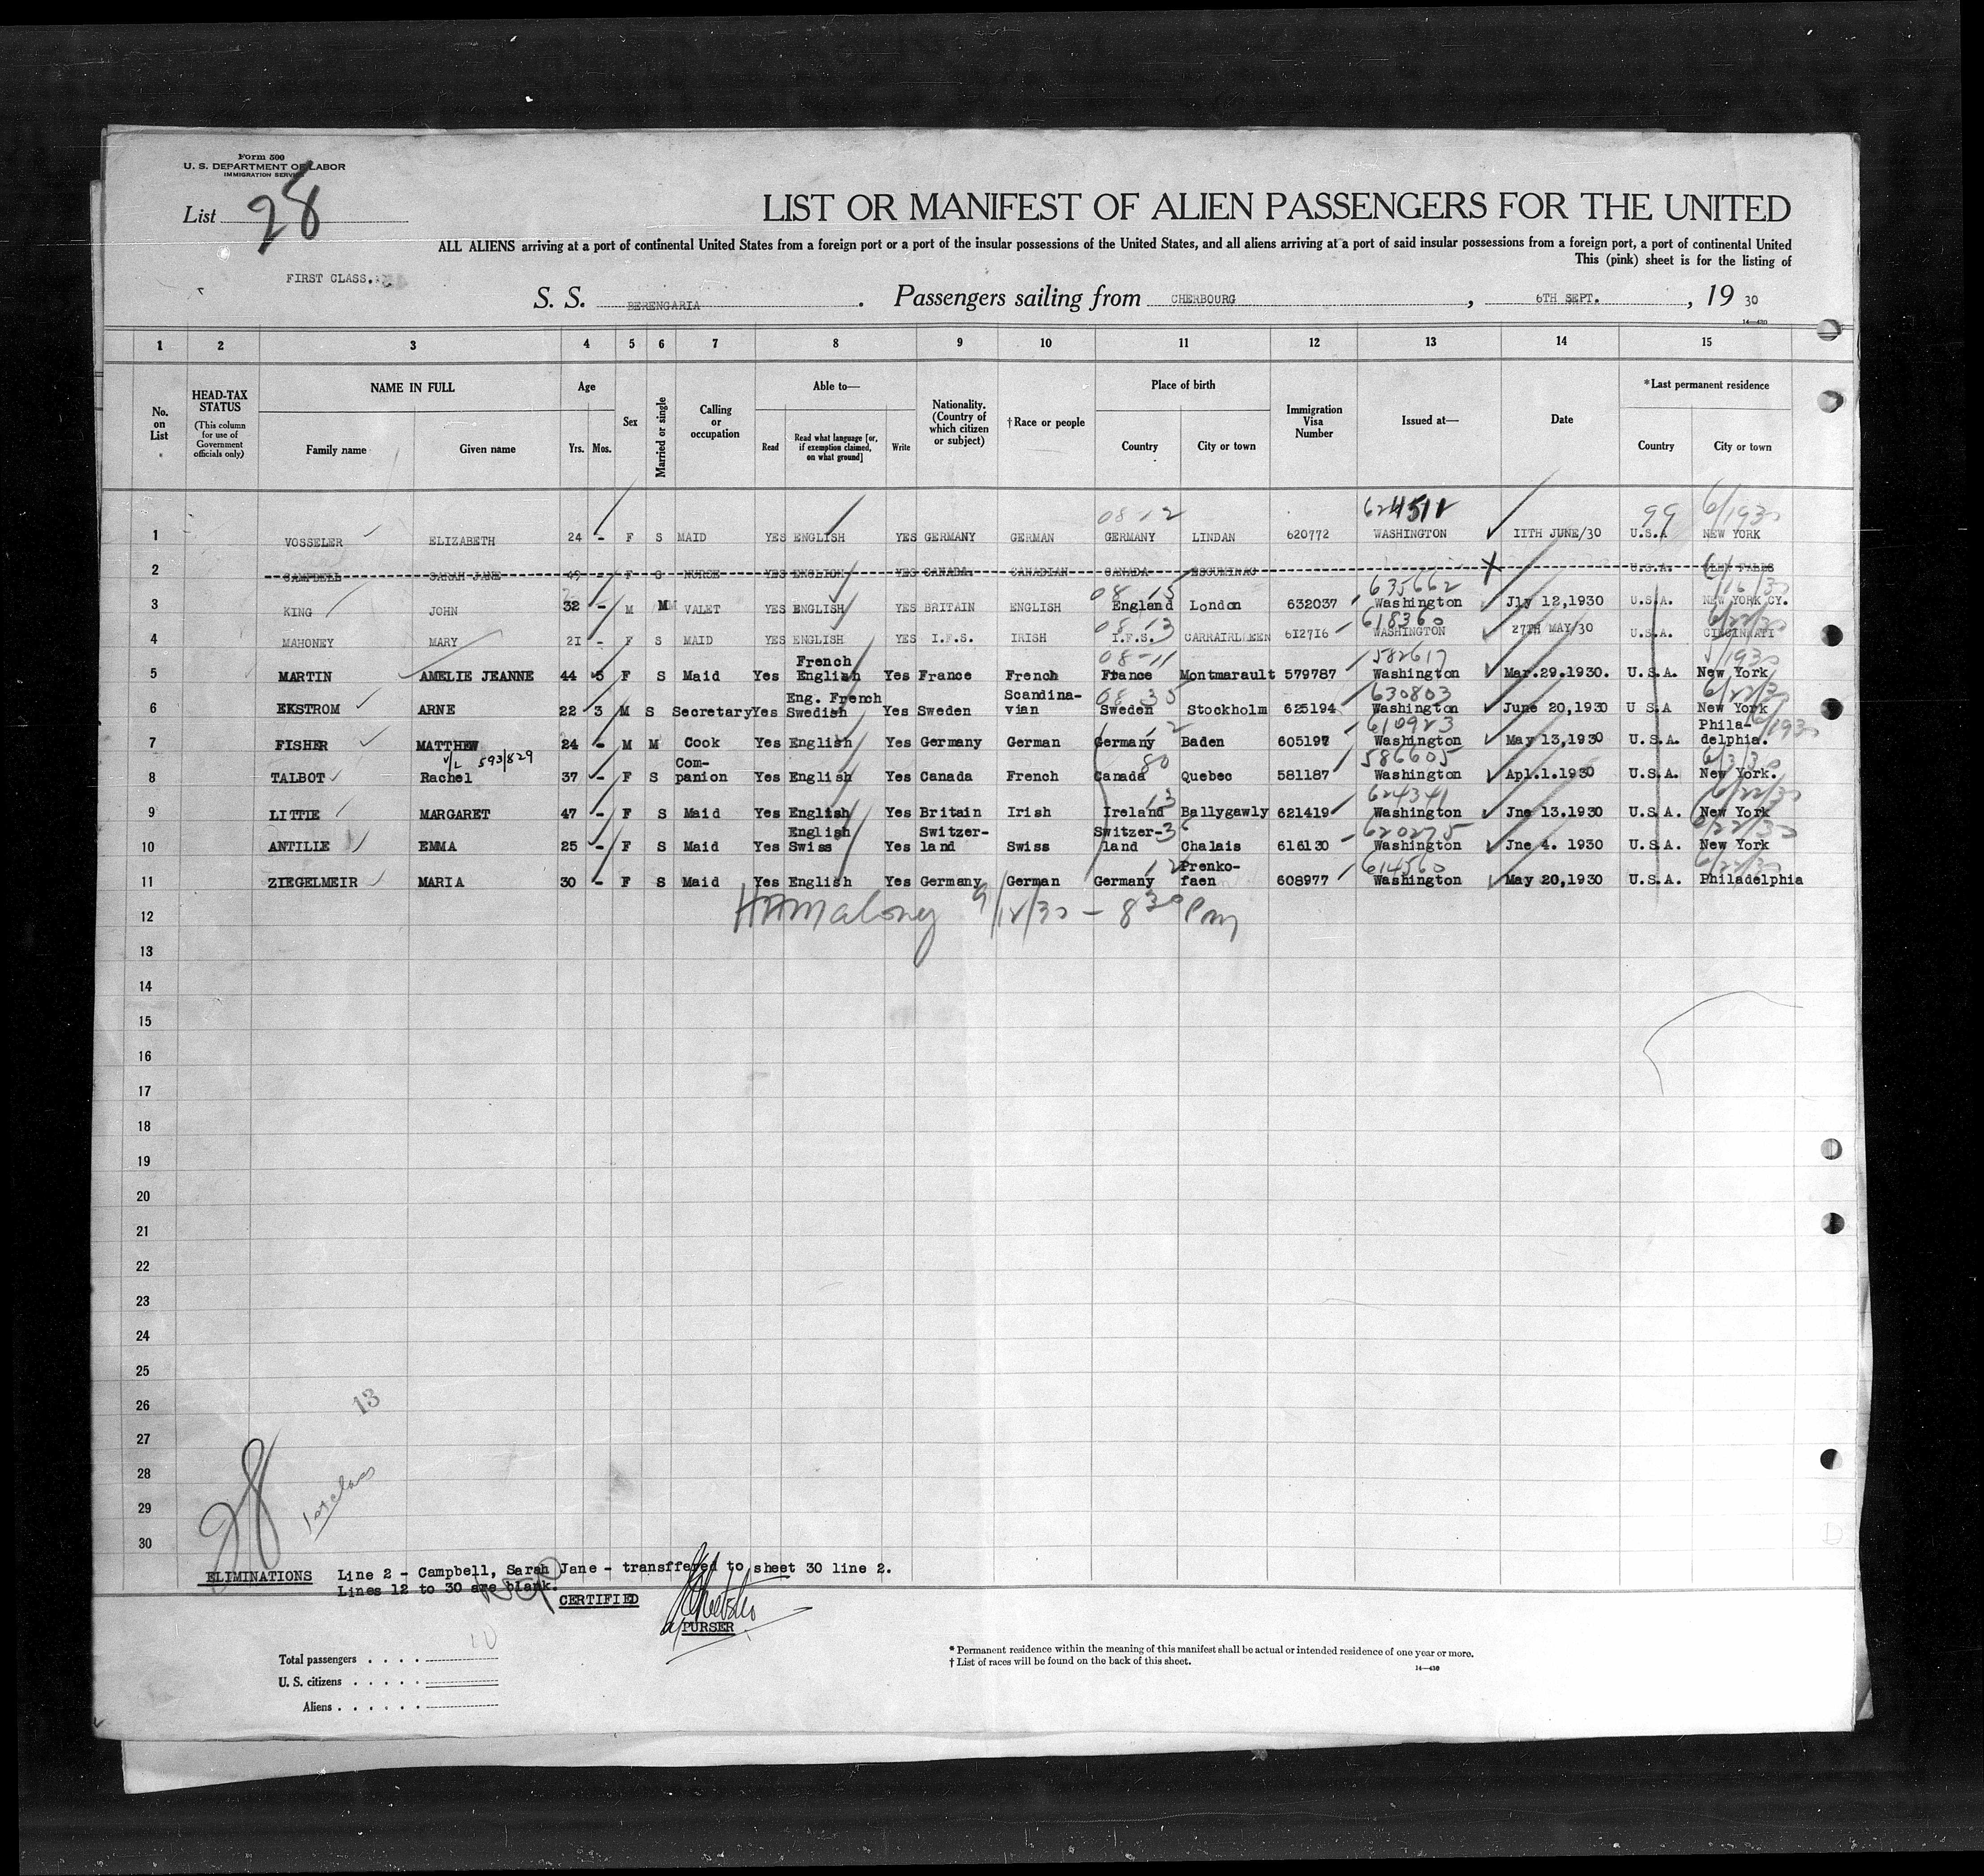 Form 500
U. S. DEPARTMENT OF LABOR
IMMIGRATION SERVICE
List 28
LIST OR MANIFEST OF ALIEN PASSENGERS FOR THE UNITED
ALL ALIENS arriving at a port of continental United States from a foreign port or a port of the insular possessions of the United States, and all aliens arriving at a port of said insular possessions from a foreign port, a port of continental United
This (pink) sheet is for the listing of
FIRST CLASS.
S. S. BERENGARIA. Passengers sailing from CHERBOURG, 6TH SEPT., 19 30
14—430
1 2 3 4 5 6 7 8 9 10 11 12 13 14 15
No. on List
HEAD-TAX STATUS (This column for use of Government officials only)
NAME IN FULL Family name Given name
Age Yrs. Mos.
Sex
Married or single
Calling or occupation
Able to— Read Read what language [or, if exemption claimed, on what ground] Write
Nationality. (Country of which citizen or subject)
†Race or people
Place of birth Country City or town
Immigration Visa Number
Issued at—
Date
*Last permanent residence Country City or town
08-12 624512 99 6/193
1 VOSSELER ELIZABETH 24 - F S MAID YES ENGLISH YES GERMANY GERMAN GERMANY LINDAN 620772 WASHINGTON 11TH JUNE/30 U.S.A NEW YORK
2 CAMPBELL SARAH JANE 49 - F S NURSE YES ENGLISH YES CANADA. CANADIAN CANADA U.S.A.
08-15 635662
3 KING JOHN 32 - M M VALET YES ENGLISH YES BRITAIN ENGLISH England London 632037 Washington Jly 12,1930 U.S.A. NEW YORK CY.
08-13 618360 6/22/30
4 MAHONEY MARY 21 - F S MAID YES ENGLISH YES I.F.S. IRISH I.F.S. 612716 WASHINGTON 27TH MAY/30 U.S.A. CINCINNATI
08-11 582617
5 MARTIN AMELIE JEANNE 44 5 F S Maid Yes French English Yes France French France Montmarault 579787 Washington Mar.29.1930. U.S.A. New York
08 35 630803 6/22/30
6 EKSTROM ARNE 22 3 M S Secretary Yes Eng. French Swedish Yes Sweden Scandina-vian Sweden Stockholm 625194 Washington June 20,1930 U S.A New York
610923
7 FISHER MATTHEW 24 - M M Cook Yes English Yes Germany German Germany Baden 605197 Washington May 13,1930 U.S.A. Phila-delphia.
V/L 593/829 80 586605
8 TALBOT Rachel 37 - F S Com-panion Yes English Yes Canada French Canada Quebec 581187 Washington Apl.1.1930 U.S.A. New York.
13 624341 6/22/30
9 LITTIE MARGARET 47 - F S Maid Yes English Yes Britain Irish Ireland Ballygawly 621419 Washington Jne 13.1930 U.S.A. New York
620275 6/22/30
10 ANTILLE EMMA 25 - F S Maid Yes English Swiss Yes Switzer-land Swiss Switzer-land Chalais 616130 Washington Jne 4. 1930 U.S.A. New York
12 614560 6/22/30
11 ZIEGELMEIR MARIA 30 - F S Maid Yes English Yes Germany German Germany Prenko-faen 608977 Washington May 20,1930 U.S.A. Philadelphia
12 HAMaloney 9/12/30 - 8 30 Pm
13
14
15
16
17
18
19
20
21
22
23
24
25
26
13
27
28
28
1st class
29
30
ELIMINATIONS Line 2 - Campbell, Sarah Jane - transffered to sheet 30 line 2.
Lines 12 to 30 are blank.
CERTIFIED
PURSER
10
Total passengers
U. S. citizens
Aliens
* Permanent residence within the meaning of this manifest shall be actual or intended residence of one year or more.
† List of races will be found on the back of this sheet.
14—430